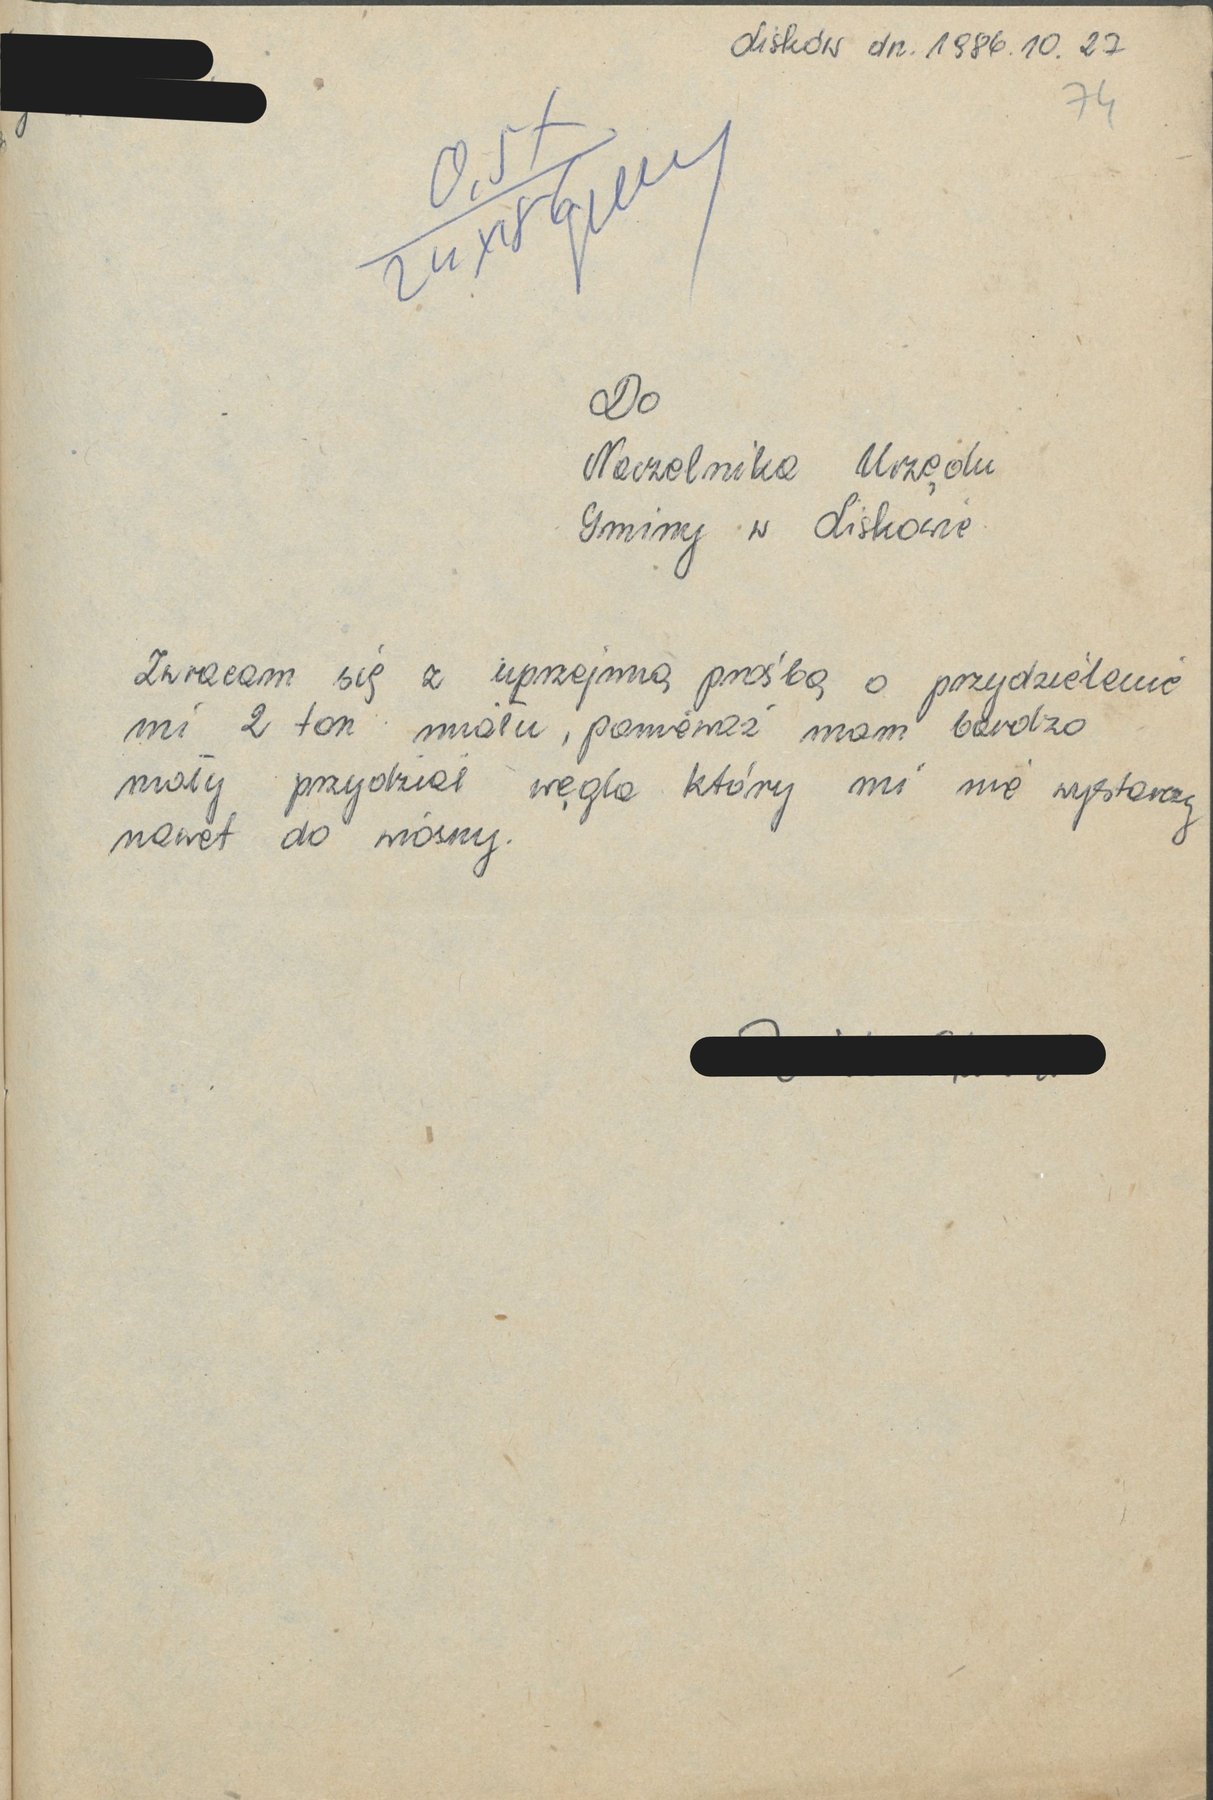 Lisków dn. 1986.10.27
74
0,5t
Do
Naczelnika Urzędu
Gminy w Liskowie
Zwracam się z uprzejmą prośbą o przydzielenie
mi 2 ton miału, ponieważ mam bardzo
mały przydział węgla który mi nie wystarczy
nawet do wiosny.